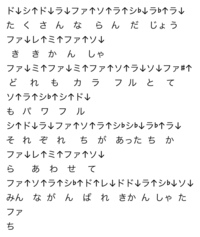 ド↓シ↑ド↓ラ↓ファ↑ソ↑ラ↑シ♭↓ラ♭↑ラ↓
た く さ ん な ら ん だ じょう
ファ↓レ↑ミ↑ファ↑ソ↓
き き か ん しゃ
ファ↓ミ↑ファ↓ミ↑ファ↑ソ↑ラ↓ソ↓ファ#↑
ど れ も カ ラ フル と て
ソ↑ラ↑シ♭↑シ↑ド↓
も パ ワ フ ル
シ↑ド↓ラ↓ファ↑ソ↑ラ↑シ♭↓ラ♭↑ラ↓
そ れ ぞ れ ち が あった ち か
ファ↓レ↑ミ↑ファ↑ソ↓
ら あ わ せ て
ファ↑ソ↑ラ↑シ♭↑ド↑レ↓ドド↓ラ↑シ♭↓ソ↓
みん な が ん ば れ きか ん しゃ た
ファ
ち